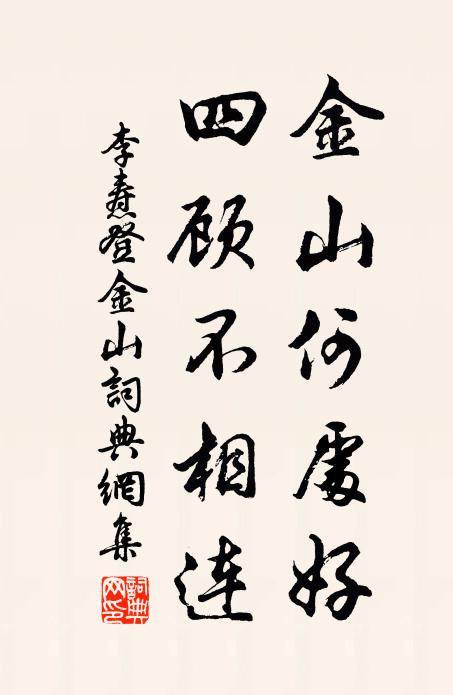 金山何處好
四顾不相连
李燾登金山詞典網集
詞典網印